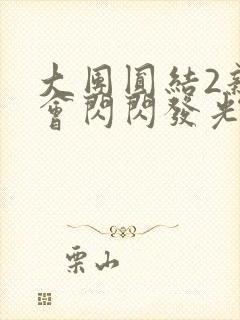 大團圓結2新
會閃閃發光
栗山